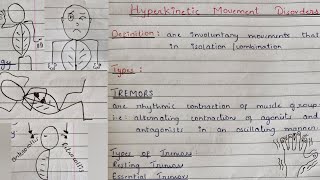 Hyperkinetic Movement Disorders
Definition: are involuntary movements that
in isolation/combination
Types:
TREMORS
are rhythmic contraction of muscle group
i.e: alternating contraction of agonists and
antagonists in an oscillating manner
Types of Tremors
Resting Tremor
Essential Tremor